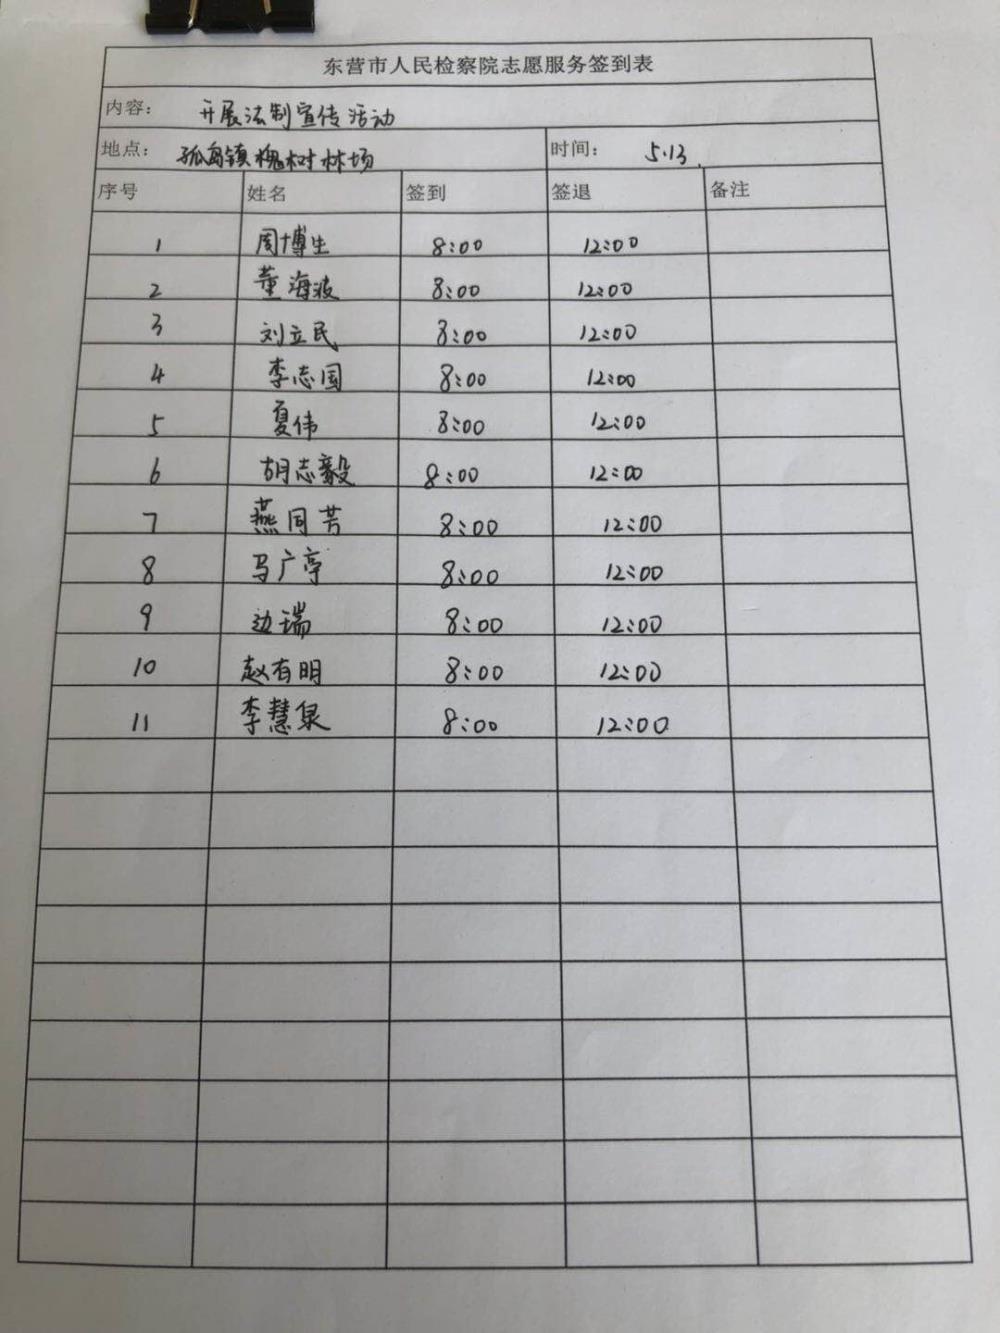 东营市人民检察院志愿服务签到表
内容： 开展法制宣传活动
地点： 孤岛镇槐树林场 时间： 5.13.
序号 姓名 签到 签退 备注
1 周博生 8:00 12:00
2 董海波 8:00 12:00
3 刘立民 8:00 12:00
4 李志国 8:00 12:00
5 夏伟 8:00 12:00
6 胡志毅 8:00 12:00
7 燕同芳 8:00 12:00
8 马广亭 8:00 12:00
9 边瑞 8:00 12:00
10 赵有明 8:00 12:00
11 李慧泉 8:00 12:00